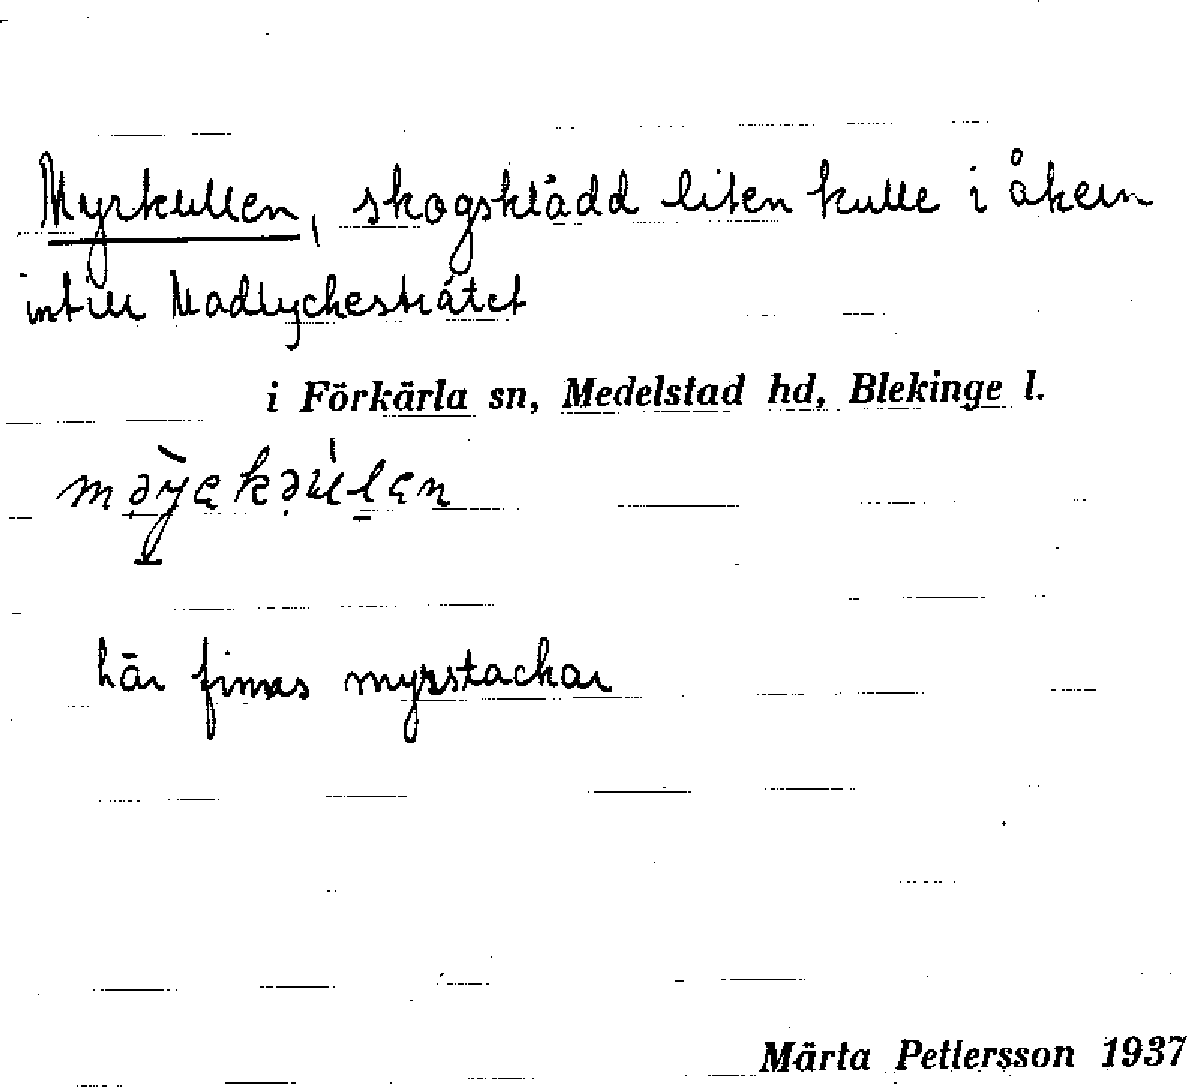 Myrkullen, skogsklädd liten kulle i åkern
intill Madlyckesträtet
i Förkärla sn, Medelstad hd, Blekinge l.
här finnes myrstackar
Märta Pettersson 1937